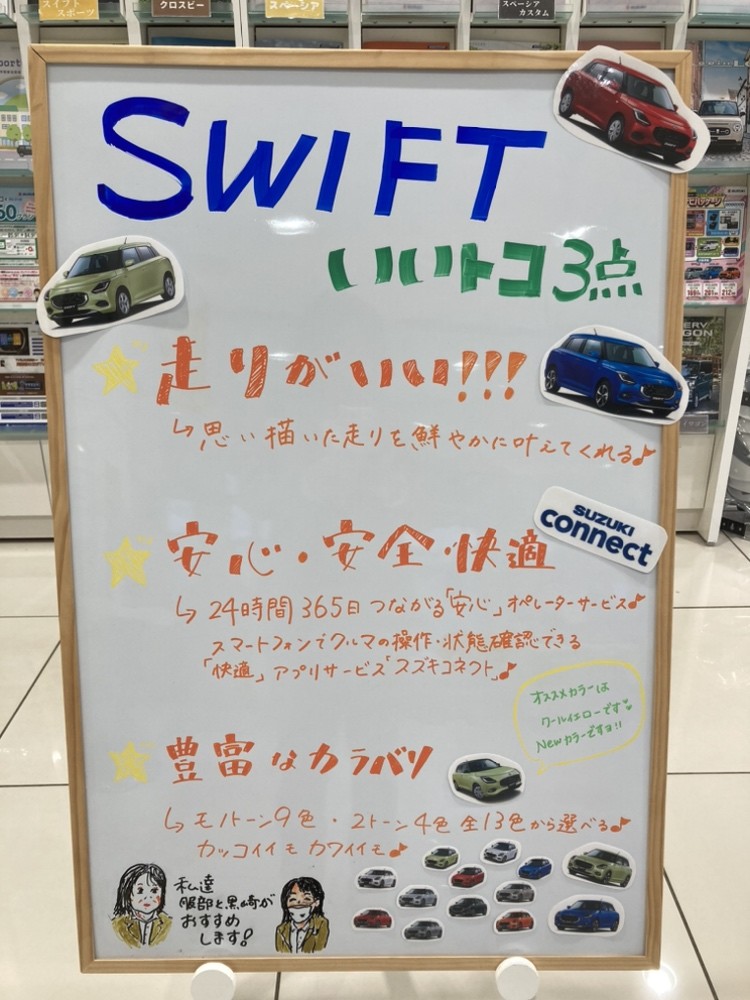 スイフト
スポーツ
クロスビー
スペーシア
スペーシア
カスタム
SWIFT
いいトコ3点
走りがいい!!!
思い描いた走りを鮮やかに叶えてくれる♪
安心・安全・快適
SUZUKI
connect
24時間365日つながる「安心」オペレーターサービス♪
スマートフォンでクルマの操作・状態確認できる
「快適」アプリサービス「スズキコネクト」♪
オススメカラーは
クールイエローです♡
Newカラーですヨ!!
豊富なカラバリ
モノトーン9色・2トーン4色 全13色から選べる♪
カッコイイモ カワイイモ♪
私達
服部と黒崎が
おすすめ
します!